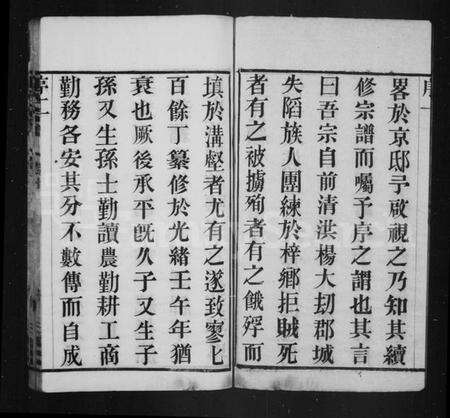 畧於京邸予啟視之乃知其續
修宗譜而囑予序之謂也其言
曰吾宗自前清洪楊大刼郡城
失陷族人團練於梓鄉拒賊死
者有之被擄殉者有之餓殍而
填於溝壑者尤有之遂致寥七
百餘丁纂修於光緒壬午年猶
衰也厥後承平旣久子又生子
孫又生孫士勤讀農勤耕工商
勤務各安其分不數傳而自成
序二